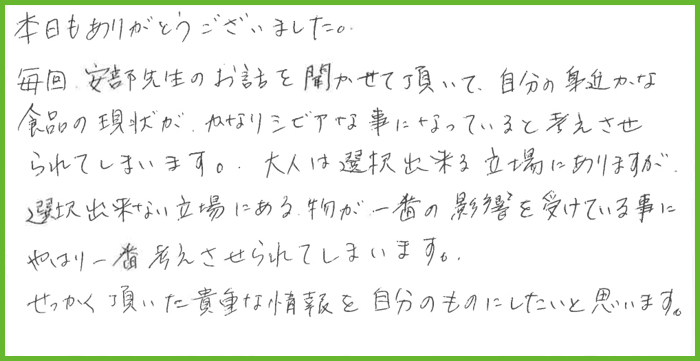 本日もありがとうございました。
毎回 安部先生のお話を聞かせて頂いて、自分の身近かな
食品の現状が、かなりシビアな事になっていると考えさせ
られてしまいます。大人は選択出来る立場にありますが、
選択出来ない立場にある物が一番の影響を受けている事に
やはり一番考えさせられてしまいます。
せっかく頂いた貴重な情報を自分のものにしたいと思います。